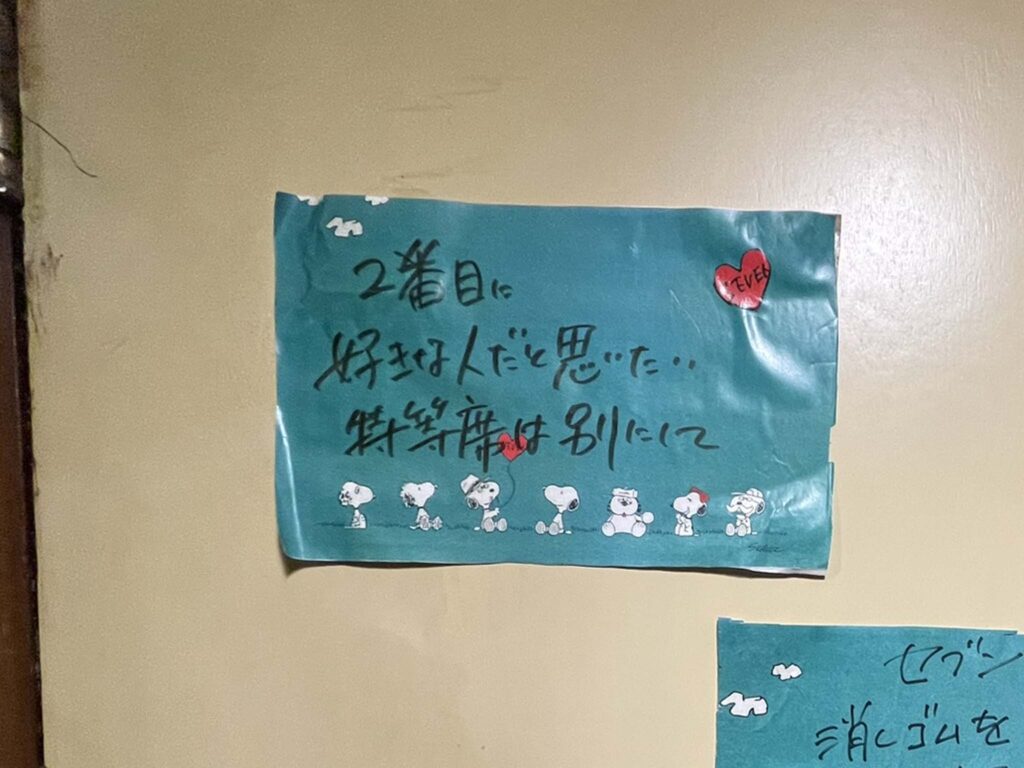 2番目に
好きな人だと思いた‥
特等席は別にして
セブン
消しゴムを